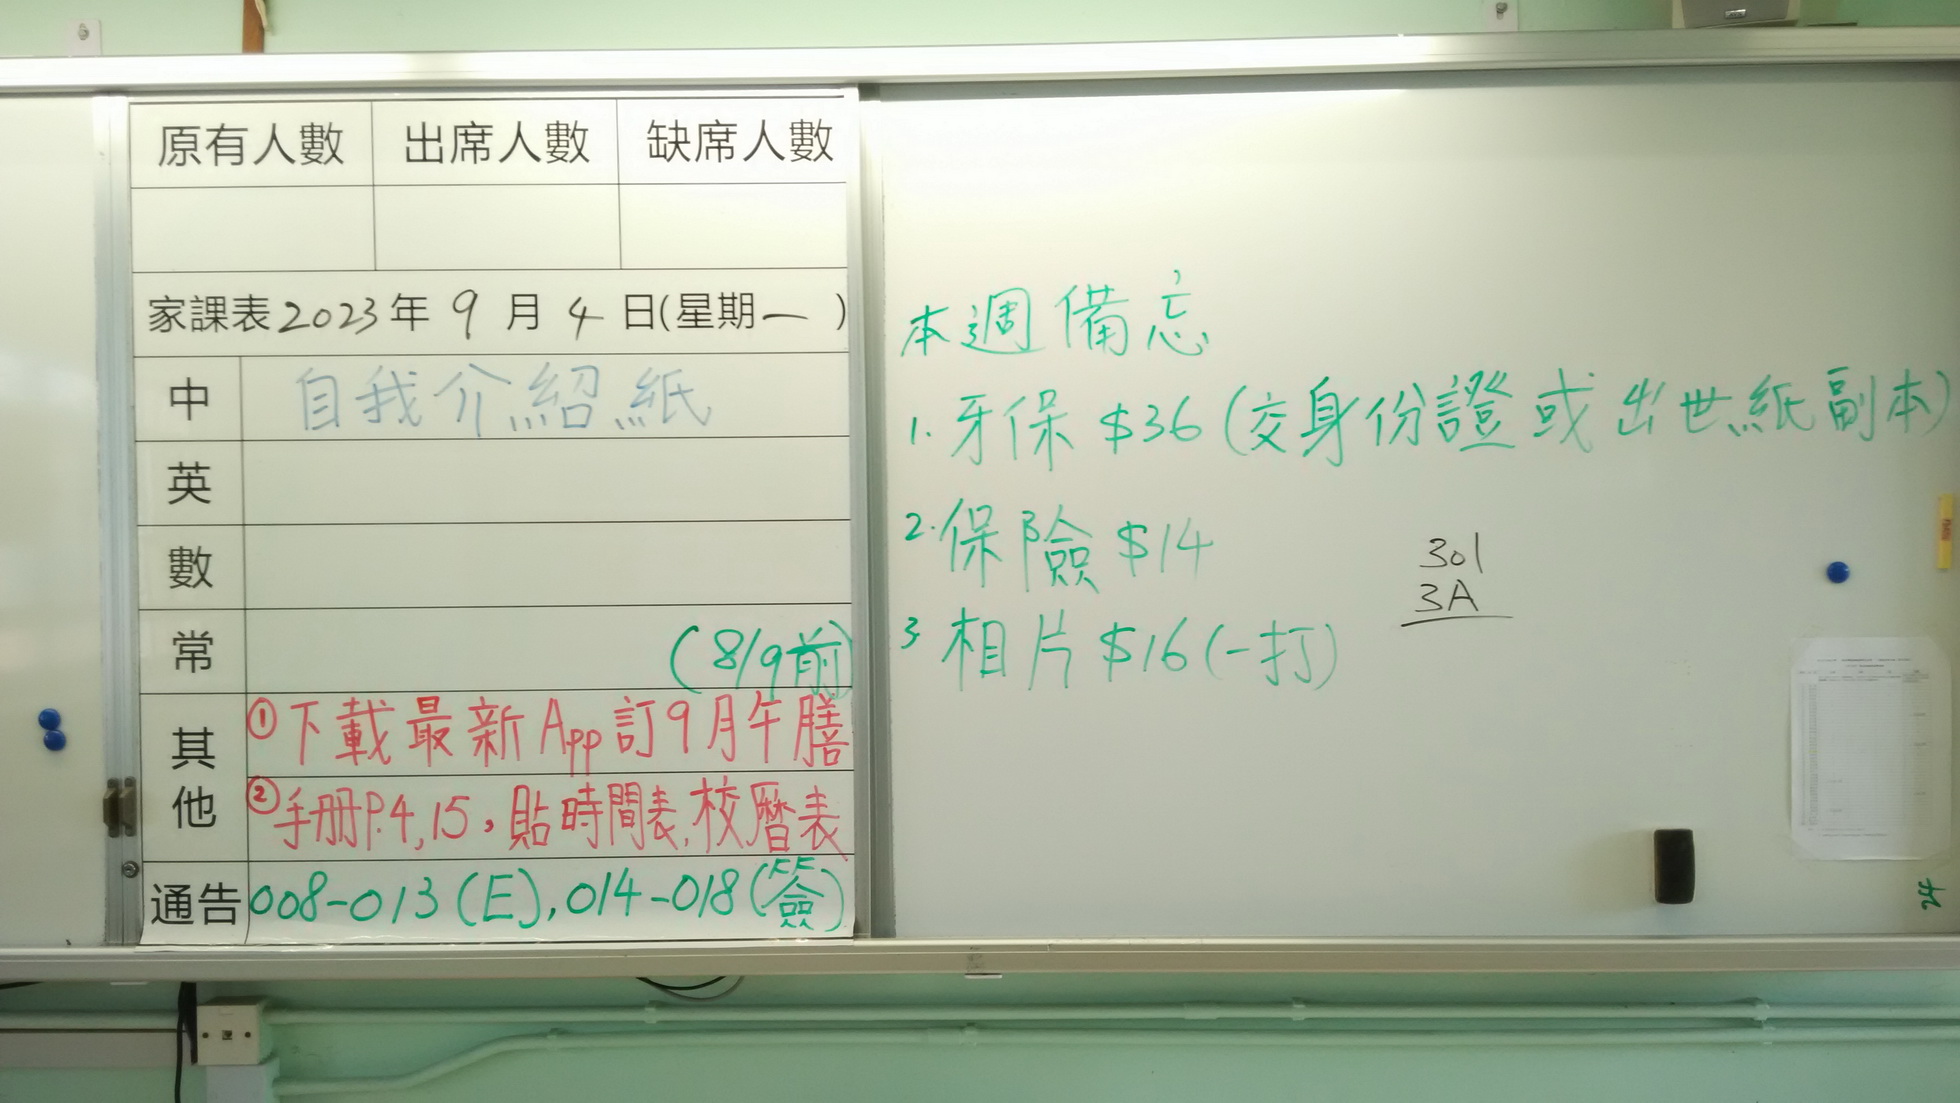 原有人數 出席人數 缺席人數
家課表2023年9月4日(星期一)
中 自我介紹紙
英
數
常 (8/9前)
其他
①下載最新App訂9月午膳
②手冊P.4,15,貼時間表,校曆表
通告 008-013(E),014-018(簽)
本週備忘
1.牙保$36(交身份證或出世紙副本)
2.保險$14
3.相片$16(一打)
301
3A